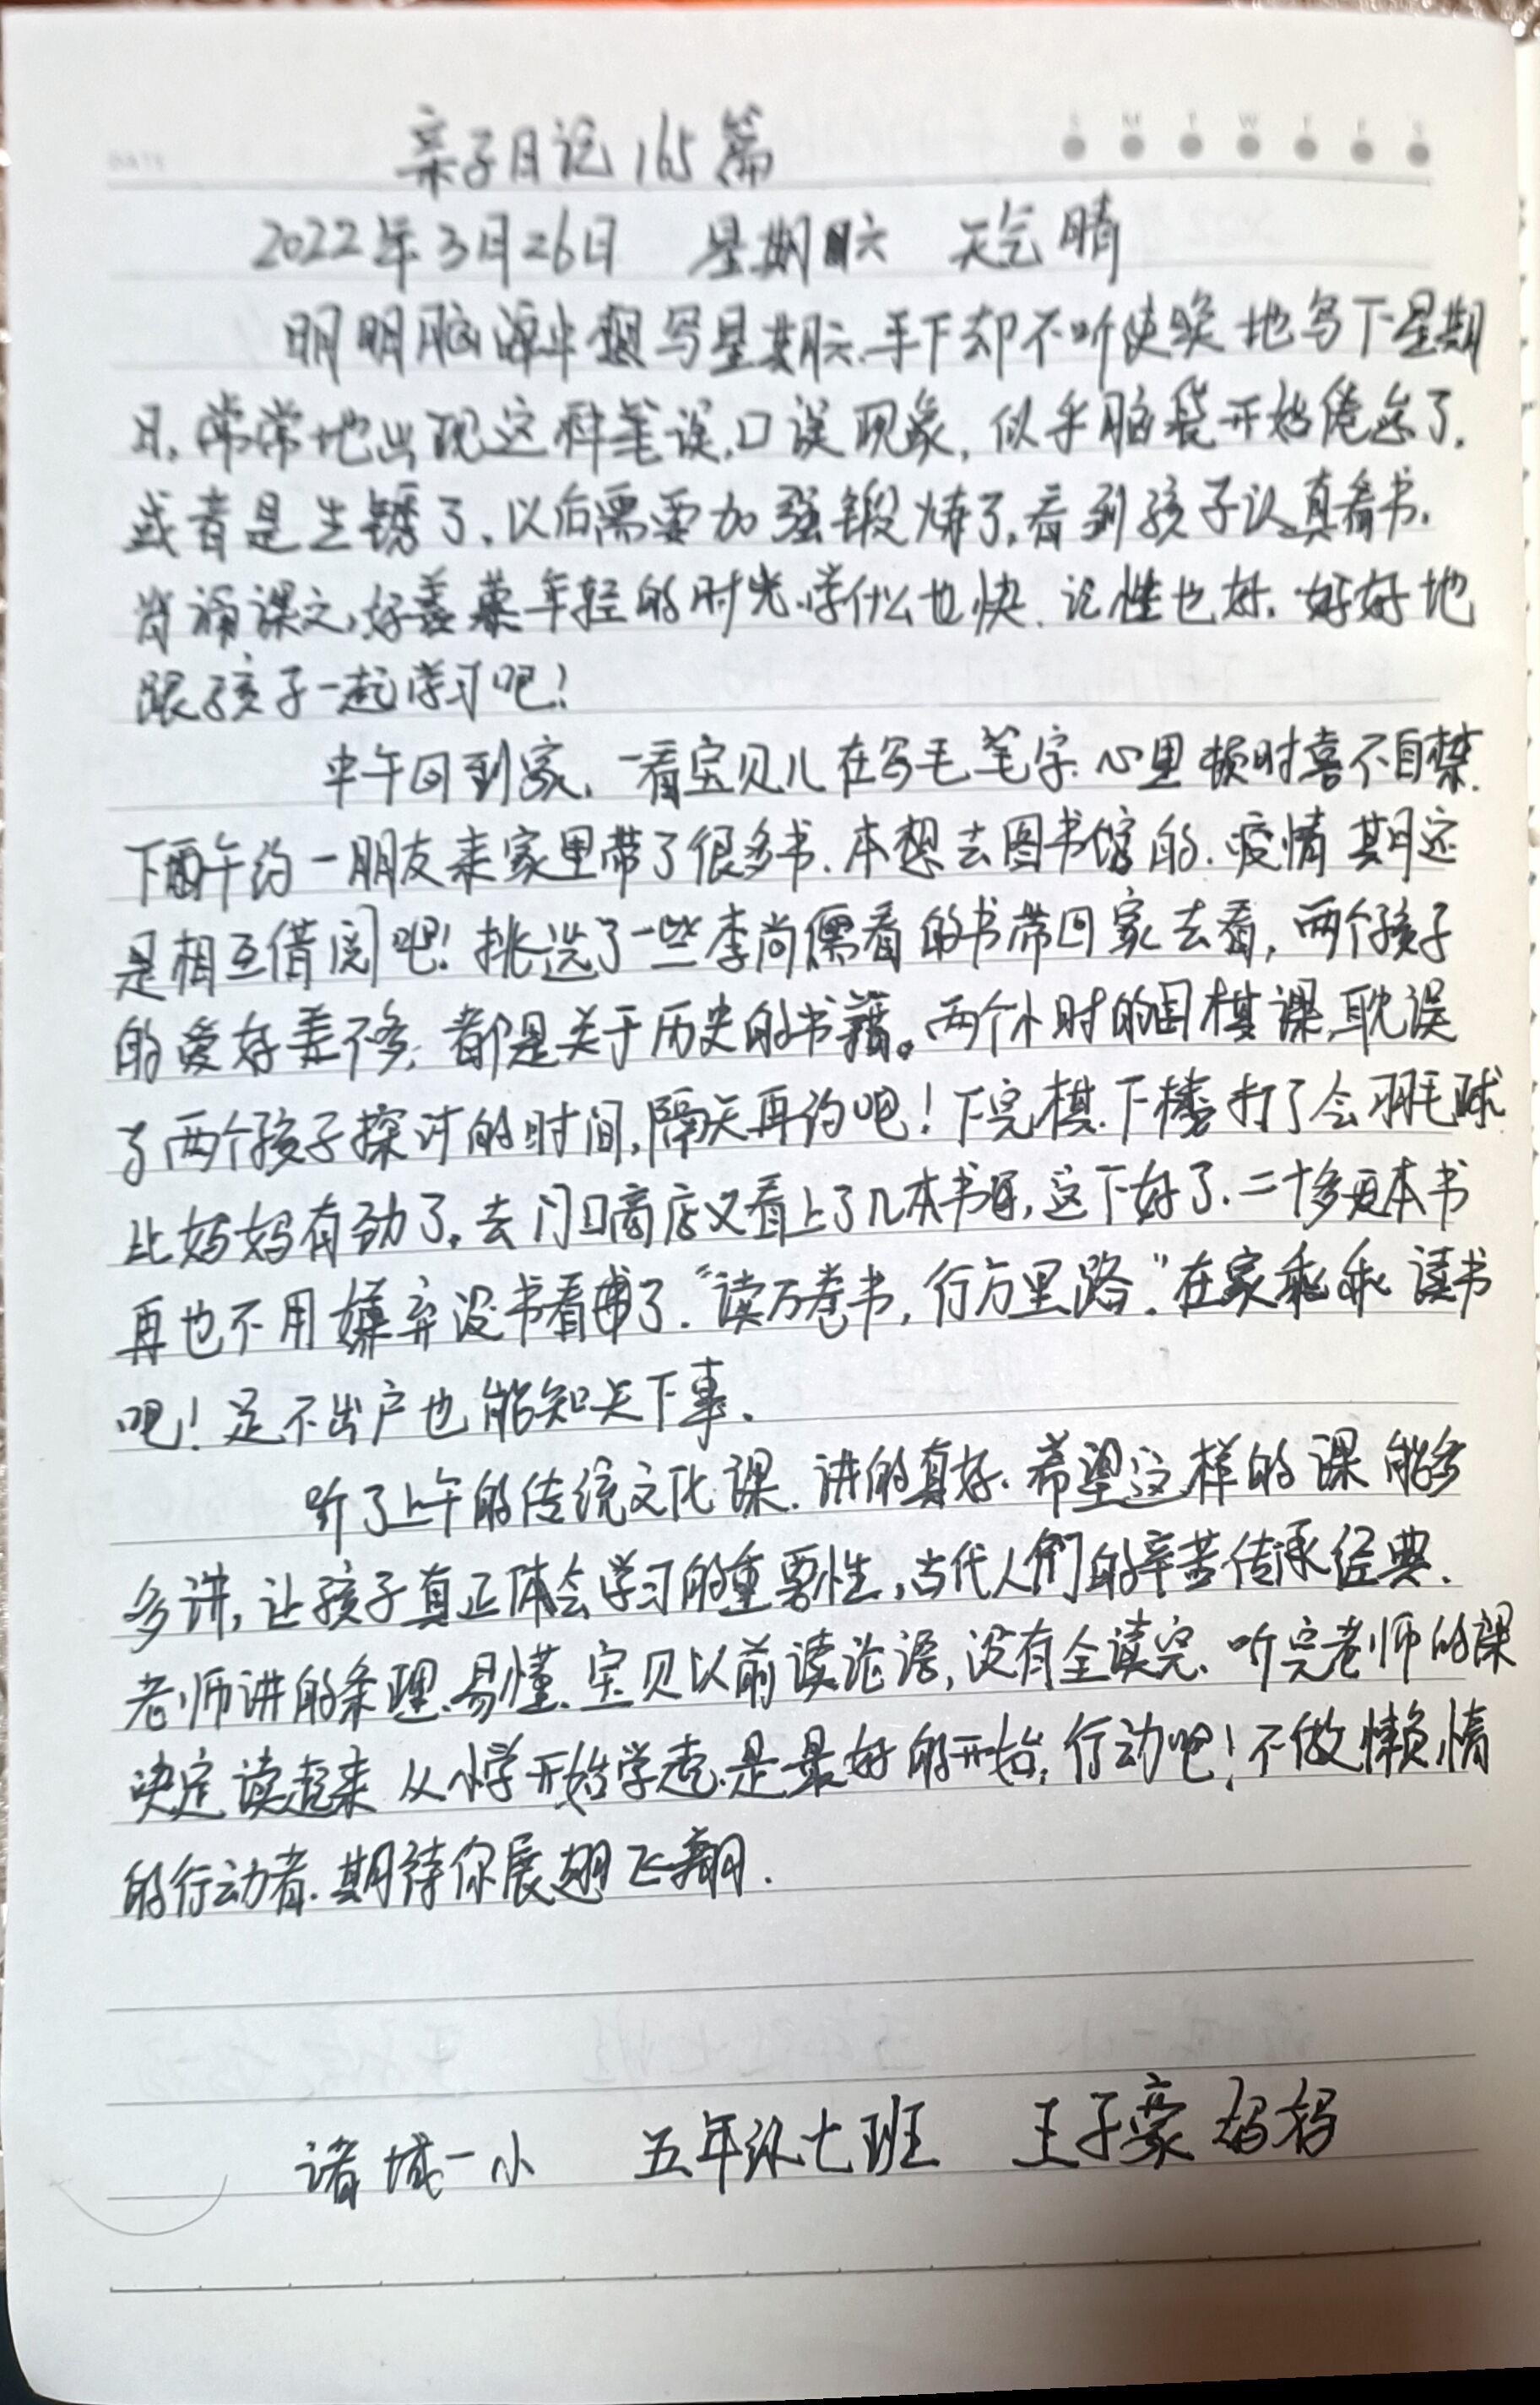 DATE
S M T W T F S
亲子日记165篇
2022年3月26日 星期六 天气晴
明明脑海中想写星期六,手下却不听使唤地写下星期
日,常常地出现这种笔误,口误现象,似乎脑袋开始倦怠了,
或者是生锈了,以后需要加强锻炼了,看到孩子认真看书,
背诵课文,好羡慕年轻的时光,学什么也快,记性也好,好好地
跟孩子一起学习吧!
中午回到家,一看宝贝儿在写毛笔字,心里顿时喜不自禁.
下午约一朋友来家里带了很多书,本想去图书馆的,疫情期还
是相互借阅吧!挑选了一些李尚儒看的书带回家去看,两个孩子
的爱好差不多,都是关于历史的书籍。两个小时的围棋课,耽误
了两个孩子探讨的时间,隔天再约吧!下完棋,下楼打了会羽毛球
比妈妈有劲了。去门口商店又看上了几本书,这下好了,二十多本书
再也不用嫌弃没书看了.“读万卷书,行万里路.”在家乖乖读书
吧!足不出户也能知天下事.
听了上午的传统文化课,讲的真好,希望这样的课能多
多讲,让孩子真正体会学习的重要性,古代人们的辛苦传承经典.
老师讲的条理,易懂,宝贝以前读论语,没有全读完,听完老师的课
决定读起来 从小学开始学走,是最好的开始,行动吧!不做懒惰
的行动者,期待你展翅飞翔.
诸城一小 五年级七班 王子豪妈妈